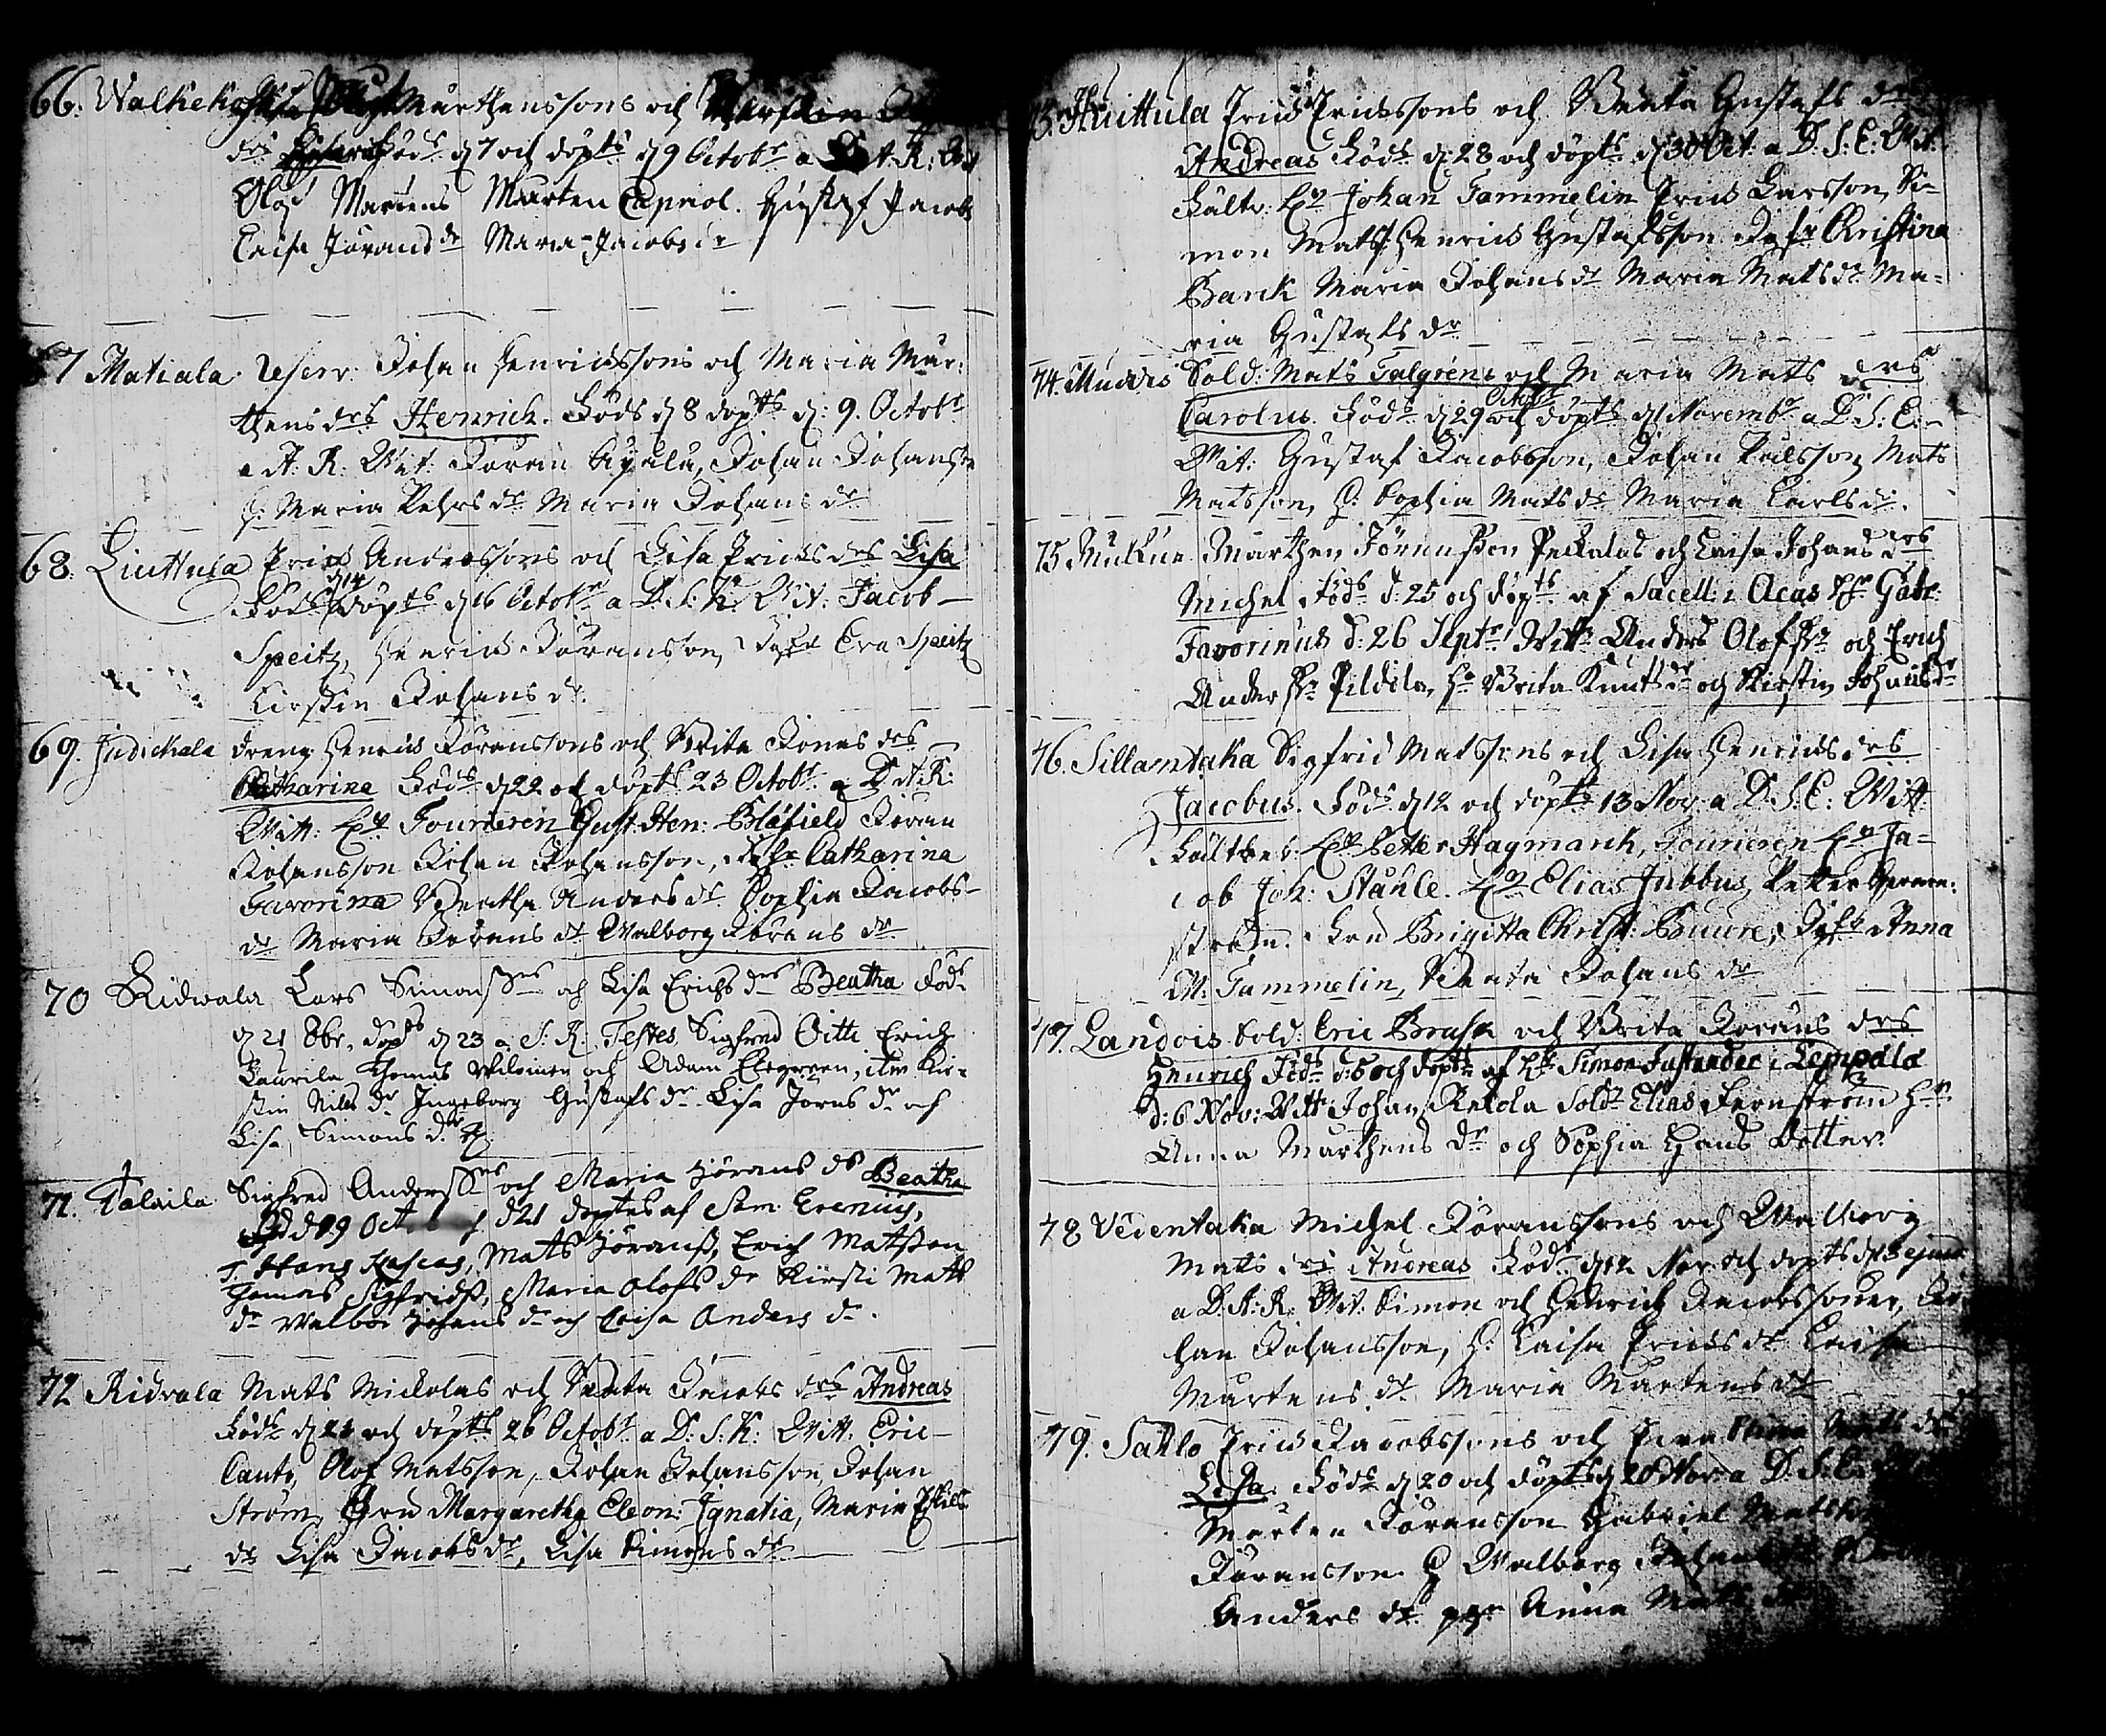 66. Walkekoski Mårthenssons och
drs födds d 7 och döpts d 9 Octobr a A: R:
Olof Mårtens Mårten Capriol. Gustaf Jacobs
Caisa Jörans dr Maria Jacobs dr
67 Matiala Reserv: Johan Henricssons och Maria Mår:
thens drs Henrich. Födds d 8 döpts d: 9. Octobr
a A: R: Wit: Jöran Äyälä, Johan Johansson
H: Maria Pehrs dr Maria Johans dr
68. Liuttula Erics Anderssons och Lisa Erics drs Lisa
d 14
Födds döpts d 16 Octobr a D. S. K. Wit: Jacob
Speitz, Henrics Jöransson, Jgfr Eva Speitz
Kirstin Johans dr.
69. Judickala dreng Henrics Jöranssons och Brita Jonas drs
Catharina Födds d 22 och döpts 23 Octobr a D A: R:
Witt: Hr Fourieren Gust. Hen: Blåfield Jöran
Johansson Johan Johansson, Jgfr Catharina
Favorina Beatha Anders dr Sophia Jacobs-
dr Maria Jörans dr Walborg Jörans dr
70 Ridwala Lars Simonssons och Lisa Erichs drs Beatha Född
d 21 8br. döpts d 23 a S: K. Testes Sigfred Oitti Erich
Laurila Thomas Wiloinen och Adam Elegreen, item Kir-
stin Nils dr Ingeborg Gustafs dr Lisa Jörns dr och
Lisa Simons dr
71. Talaila Sigfred Anderssons och Maria Hörans ds Beatha
Född d 19 Oct. och d 21 döptes af Sam: Erenius,
T. Hans Kascas, Mats Hörans, Erich Matsson
Thomas Sigfrids, Maria Olofs dr Kirsti Matts
dr Walbor Johans dr och Caisa Anders dr.
72 Ridvala Mats Nickolas och Beata Jacobs drs Andreas
Födds d 24 och döpts 26 Octobr a D: S. K: Witt. Eric
Canto, Olof Matsson, Johan Johansson, Johan
Ström, Fru Margaretha Eleon: Ignatia, Maria
dr Lisa Jacobs dr, Lisa Simons dr
73. Huittula Erics Ericssons och Beata Gustafs drs
Andreas Födds d: 28 och döpts d 30 Oct: a D: S: E: Wit:
Fältv: Hr Johan Tammelin Erics Larsson, Si-
mon Mats: Henrics Gustafsson Jgfr Christina
Barck Maria Johans dr Maria Mats dr Ma-
ria Gustafs dr
74. Muddis Sold: Mats Falgréns och Maria Mats drs
Octobr
Carolus. Födds d 29 och döpts d 1 Novembr a D. S: E:
Wit: Gustaf Jacobsson, Johan Pålsson, Mats
Matsson, H: Sophia Mats dr Maria Carls dr.
75 Mälkiä Mårthen Jöransson Peckalas och Caisa Johans drs
Michel Födds d: 25 och döpts af Sacell: i Acas Hr Gabr:
Favorinus d: 26 Septr Witt: Anders Olofsson och Erich
Andersson Pildila, Ho Brita Knuts dr och Kirstin Johans dr
76. Sillantaka Sigfrid Matssons och Lisa Henrics drs
Jacobus. Födds d 12 och döpts 13 Nov: a D. S: E: Witt:
Fältveb: Hr Petter Hagmarck, Fourieren Hr Ja-
cob Joh: Stähle. Hr Elias Jubbus, Petter
ström. Fru Brigitta Christ: Buure, Jgfr Anna
M: Tammelin, Beata Johans dr
77. Landois Sold: Eric Brusk och Brita Jörans drs
Henrich Födds d: 5 och döpts af Hr Simon Justander i Lempälä
d: 6 Nov: Witt: Johan Rekola Soldt Elias Fernström Hu
Anna Mårthens dr och Sophia Hans Dotter
78 Vedentaka Michel Jöranssons och Walborg
Mats drs Andreas Födds d 12 Nov. och döpts d 13 ejusd.
a D. A: R: Wit: Simon och Henrich Jacobssoner, Jo-
han Johansson, H: Caisa Erics dr Caisa
Mårtens dr Maria Mårtens dr
79. Sattlo Erics Jacobssons och Mats dr
Lisa. Födds d 20 och döpts d 20 Nov: a D. S: E:
Mårten Jöransson Gabriel Matsson
Jöransson H Walborg
Anders dr Anna Mats dr